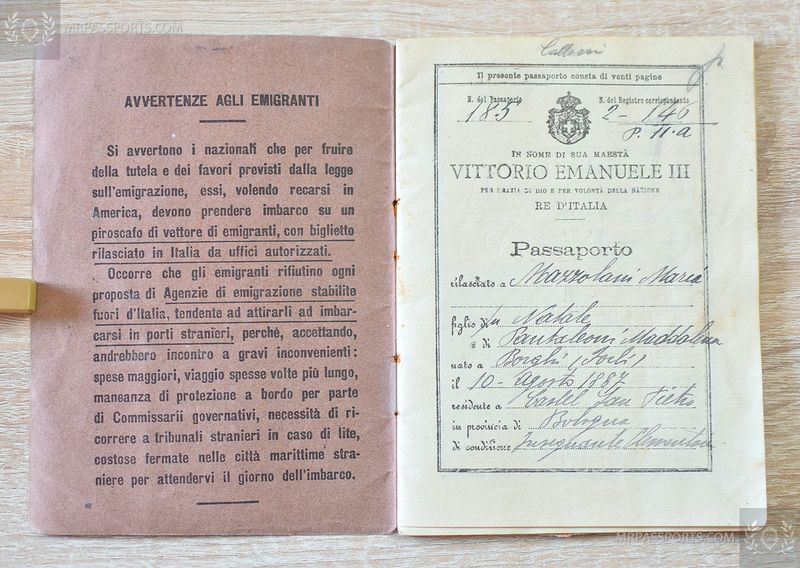 MRPASSPORTS.COM
AVVERTENZE AGLI EMIGRANTI
Si avvertono i nazionali che per fruire
della tutela e dei favori previsti dalla legge
sull'emigrazione, essi, volendo recarsi in
America, devono prendere imbarco su un
piroscafo di vettore di emigranti, con biglietto
rilasciato in Italia da uffici autorizzati.
Occorre che gli emigranti rifiutino ogni
proposta di Agenzie di emigrazione stabilite
fuori d'Italia, tendente ad attirarli ad imbar-
carsi in porti stranieri, perchè, accettando,
andrebbero incontro a gravi inconvenienti:
spese maggiori, viaggio spesse volte più lungo,
maneanza di protezione a bordo per parte
di Commissarii governativi, necessità di ri-
correre a tribunali stranieri in caso di lite,
costose fermate nelle città marittime stra-
niere per attendervi il giorno dell'imbarco.
Il presente passaporto consta di venti pagine
N. del Passaporto N. del Registro corrispondente
185 2-146
P. 11.a
IN NOME DI SUA MAESTÀ
VITTORIO EMANUELE III
PER GRAZIA DI DIO E PER VOLONTÀ DELLA NAZIONE
RE D'ITALIA
Passaporto
rilasciato a Mazzolani Maria
figlio di Natale
e di Pantaleoni Maddalena
nato a Borghi (Forlì)
il 10 - Agosto 1887
residente a Castel San Pietro
in provincia di Bologna
di condizione Insegnante Elementare
MRPASSPORTS.COM